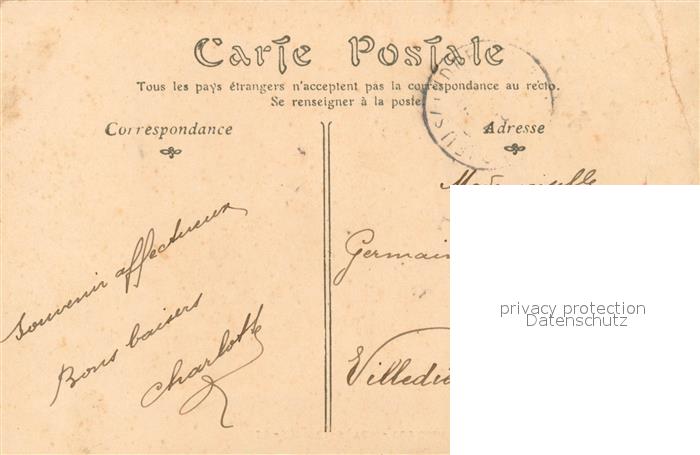 Carte Postale
Tous les pays étrangers n'acceptent pas la correspondance au recto.
Se renseigner à la poste.
Correspondance
Adresse
Souvenir affectueux
Bons baisers
Charlotte
Mademoiselle
Germain
Villedi
privacy protection
Datenschutz